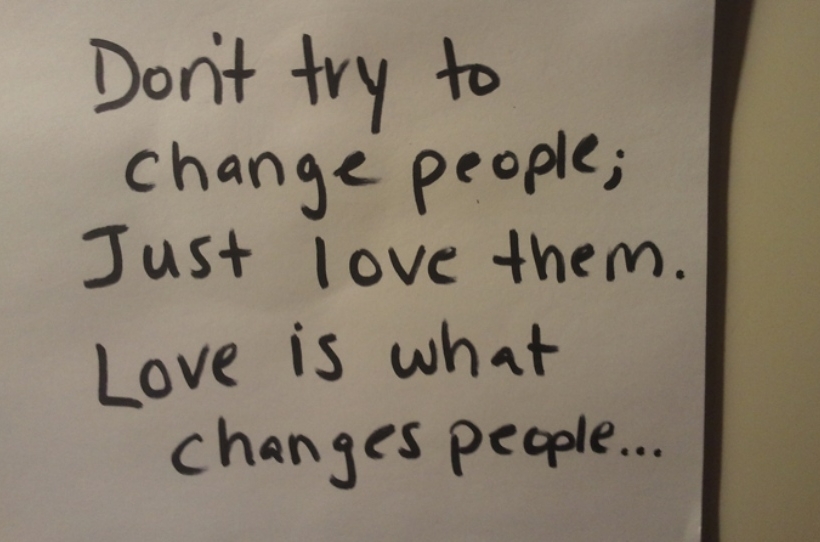 Don't try to
change people;
Just love them.
Love is what
changes people...